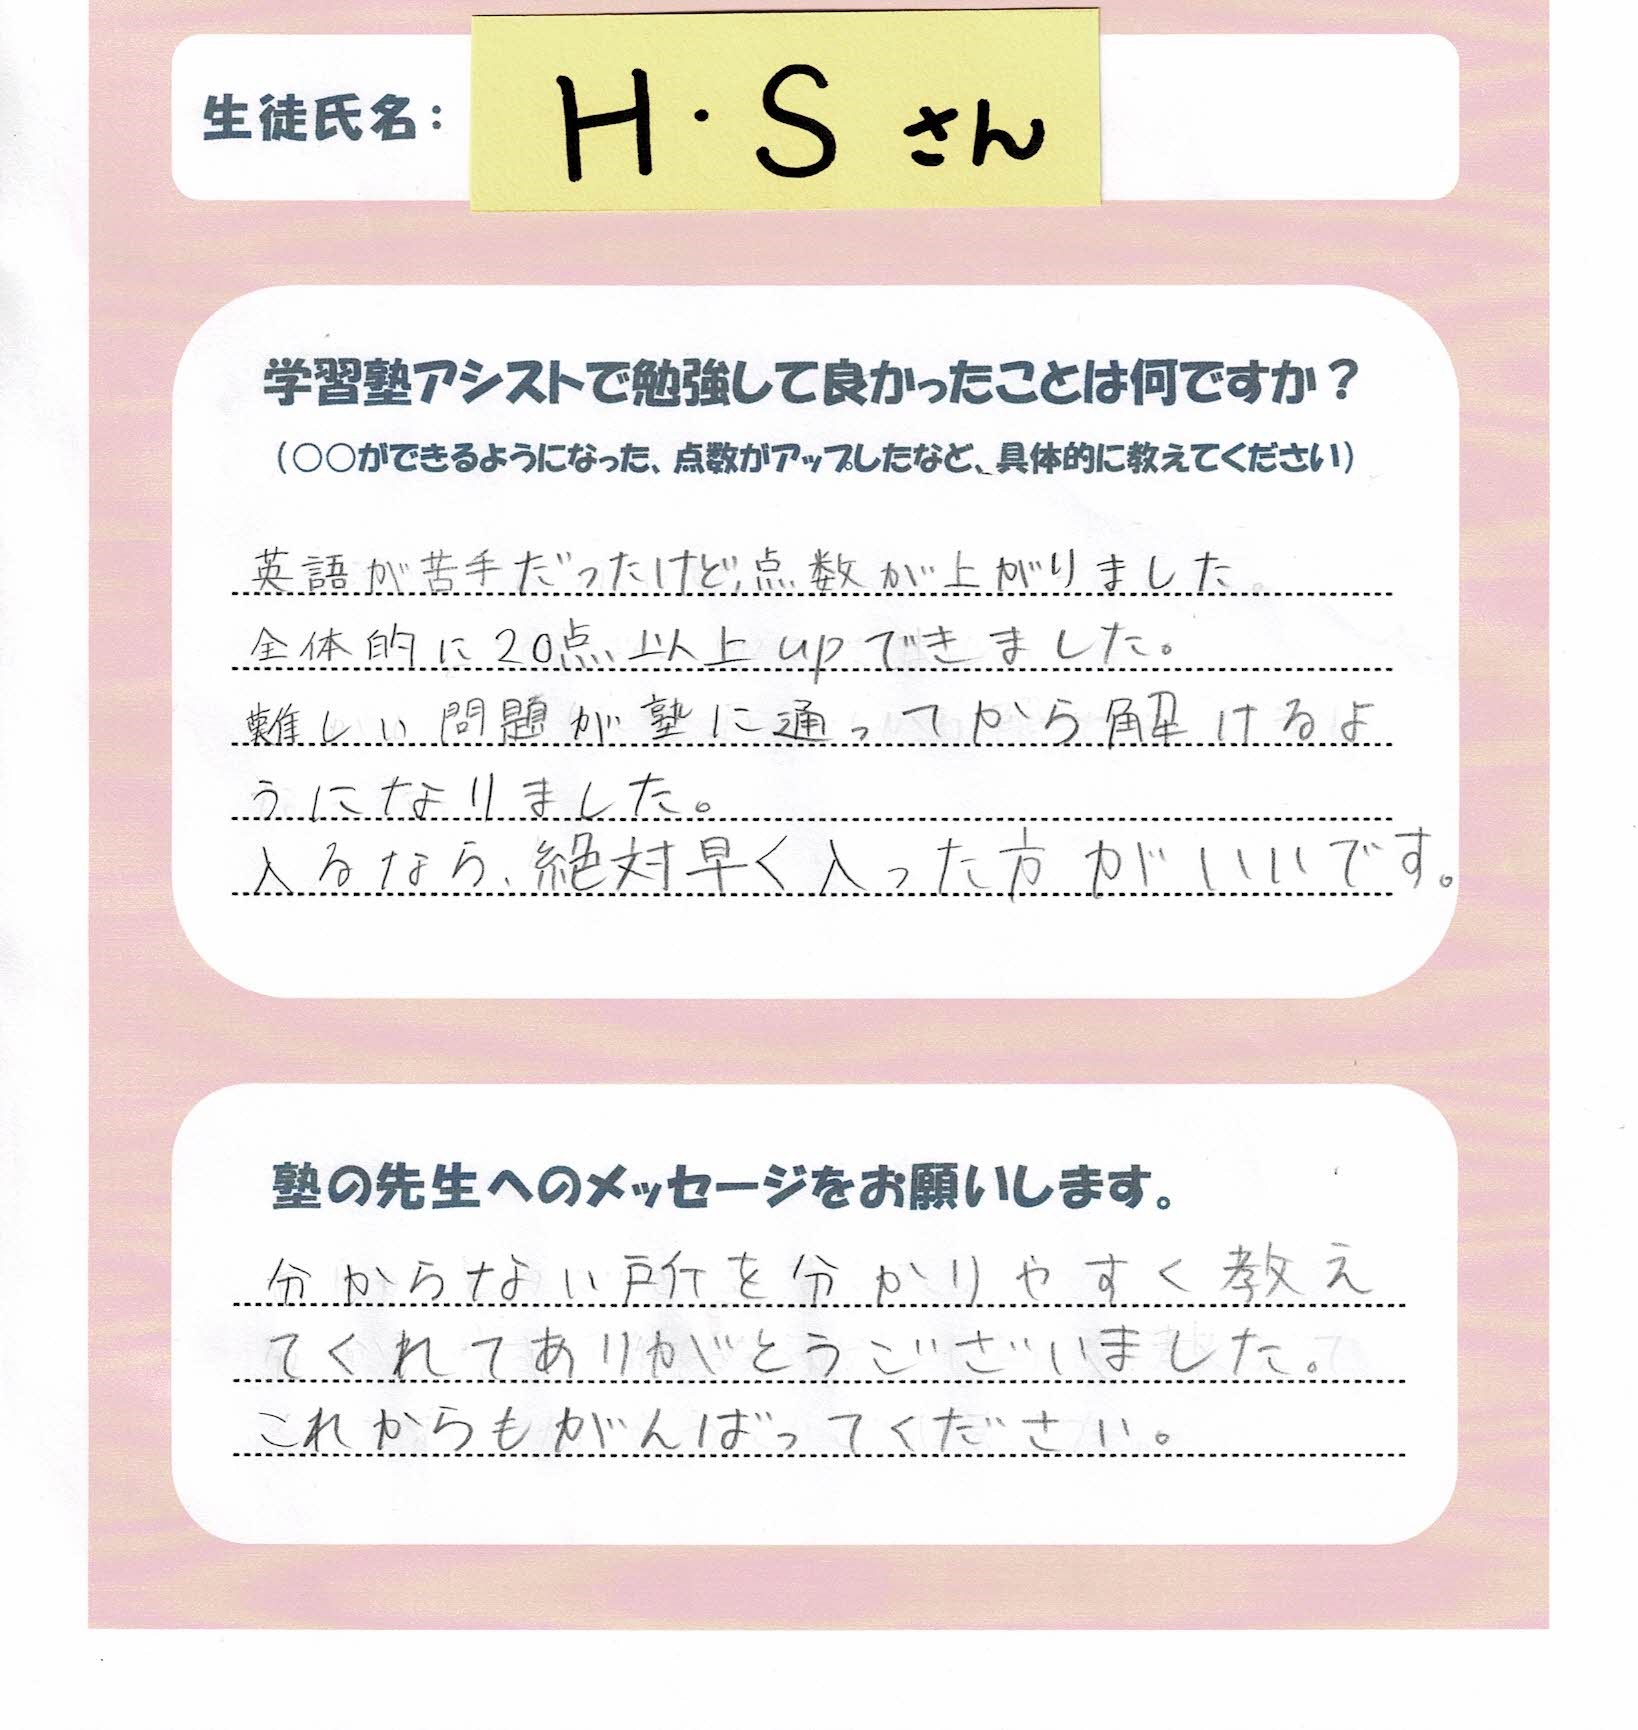 生徒氏名：
H・Sさん
学習塾アシストで勉強して良かったことは何ですか？
（○○ができるようになった、点数がアップしたなど、具体的に教えてください）
英語が苦手だったけど、点数が上がりました。
全体的に20点以上upできました。
難しい問題が塾に通ってから解けるよ
うになりました。
入るなら、絶対早く入った方がいいです。
塾の先生へのメッセージをお願いします。
分からない所を分かりやすく教え
てくれてありがとうございました。
これからもがんばってください。